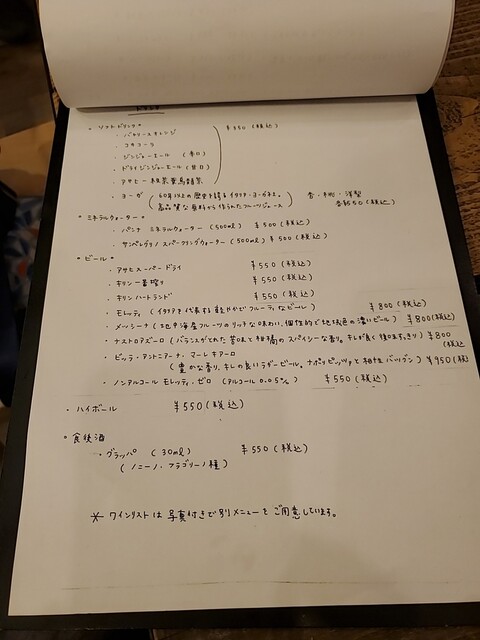 ドリンク
・ソフトドリンク
・バヤリースオレンジ ¥350(税込)
・コカコーラ
・ジンジャーエール (辛口)
・ドライジンジャーエール (甘口)
・アサヒー
・ヨーガ (60年以上の歴史を誇るイタリア・ヨーガ社。 杏・桃・洋梨
高品質な原料から作られたフルーツジュース)
・ミネラルウォーター
・パンナ ミネラルウォーター (500ml) ¥500(税込)
・サンペレグリノ スパークリングウォーター (500ml) ¥500(税込)
・ビール
・アサヒスーパードライ ¥550(税込)
・キリン一番搾り ¥550(税込)
・キリンハートランド ¥550(税込)
・モレッティ (イタリアを代表する軽やかでフルーティなビール) ¥800(税込)
・メッシーナ (地中海産フルーツのリッチな味わい、個性的で地域色の濃いビール) ¥800(税込)
・ナストロアズーロ (バランスがとれた苦味と柑橘のスパイシーな香り。キレが良く後口すっきり) ¥800(税込)
・ビッラ・アントニアーナ・マーレ キアーロ
(豊かな香り、キレの良いラガービール。ナポリピッツァと相性バツグン) ¥950(税込
・ノンアルコール モレッティ・ゼロ (アルコール 0.05%) ¥550(税込)
・ハイボール ¥550(税込)
・食後酒
・グラッパ (30ml) ¥550(税込)
(ノニーノ・フラゴリーノ種)
※ ワインリストは写真付きで別メニューをご用意しています。